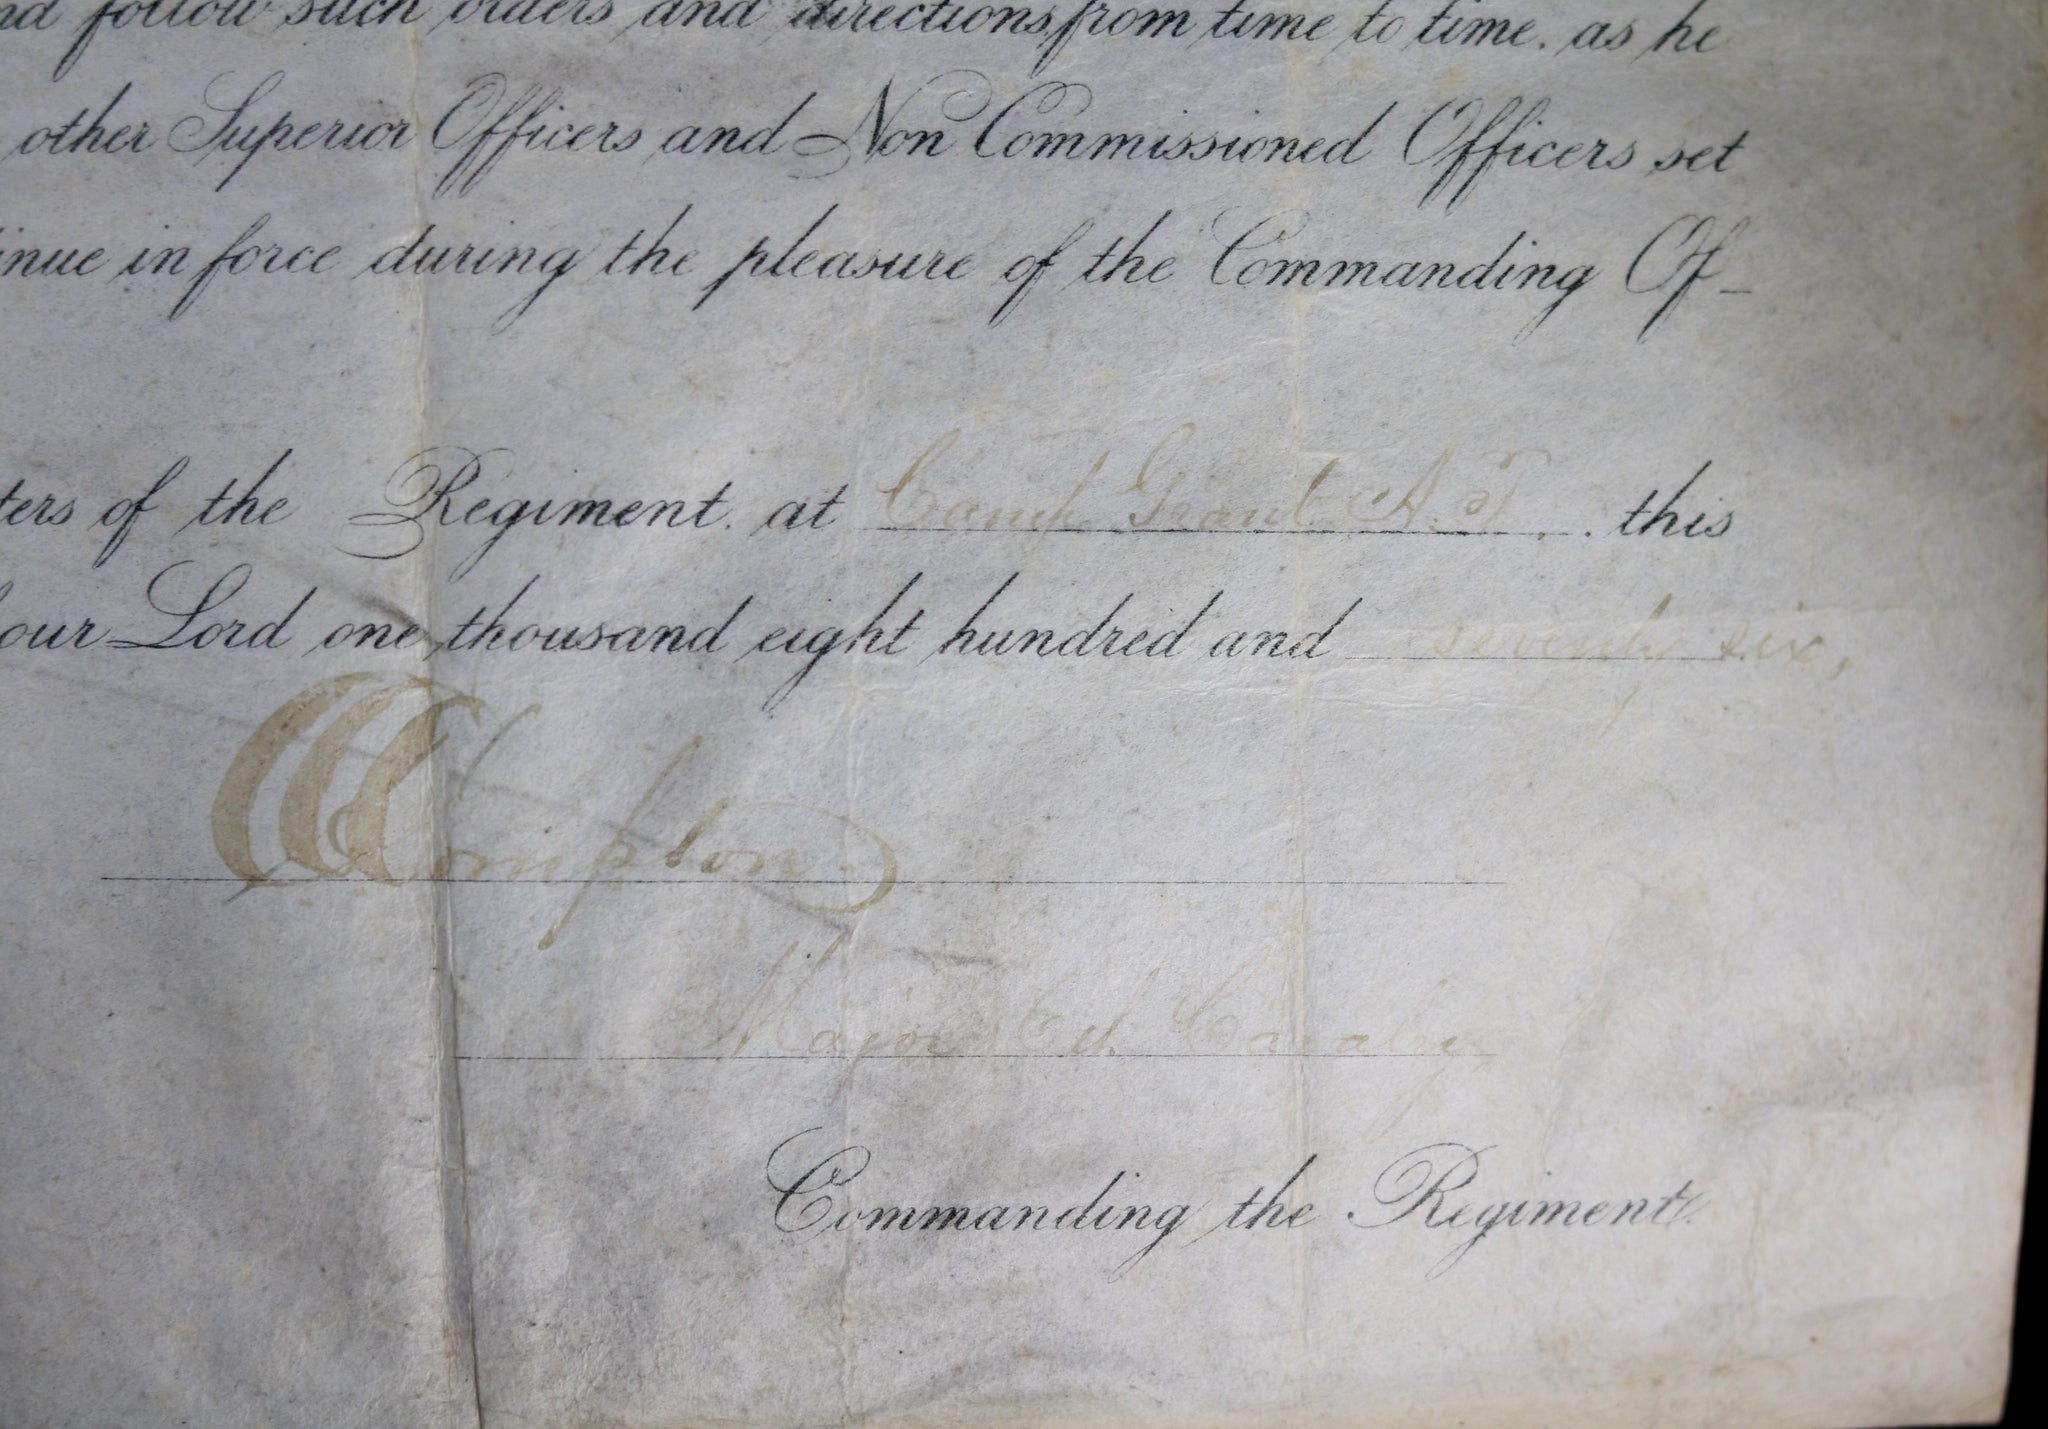 nd follow such orders and directions from time to time. as he
other Superior Officers and Non Commissioned Officers set
inue in force during the pleasure of the Commanding Of-
ters of the Regiment. at Camp Grant A.T. this
our Lord one thousand eight hundred and seventy six,
CCCompton
Major 6th Cavalry
Commanding the Regiment.